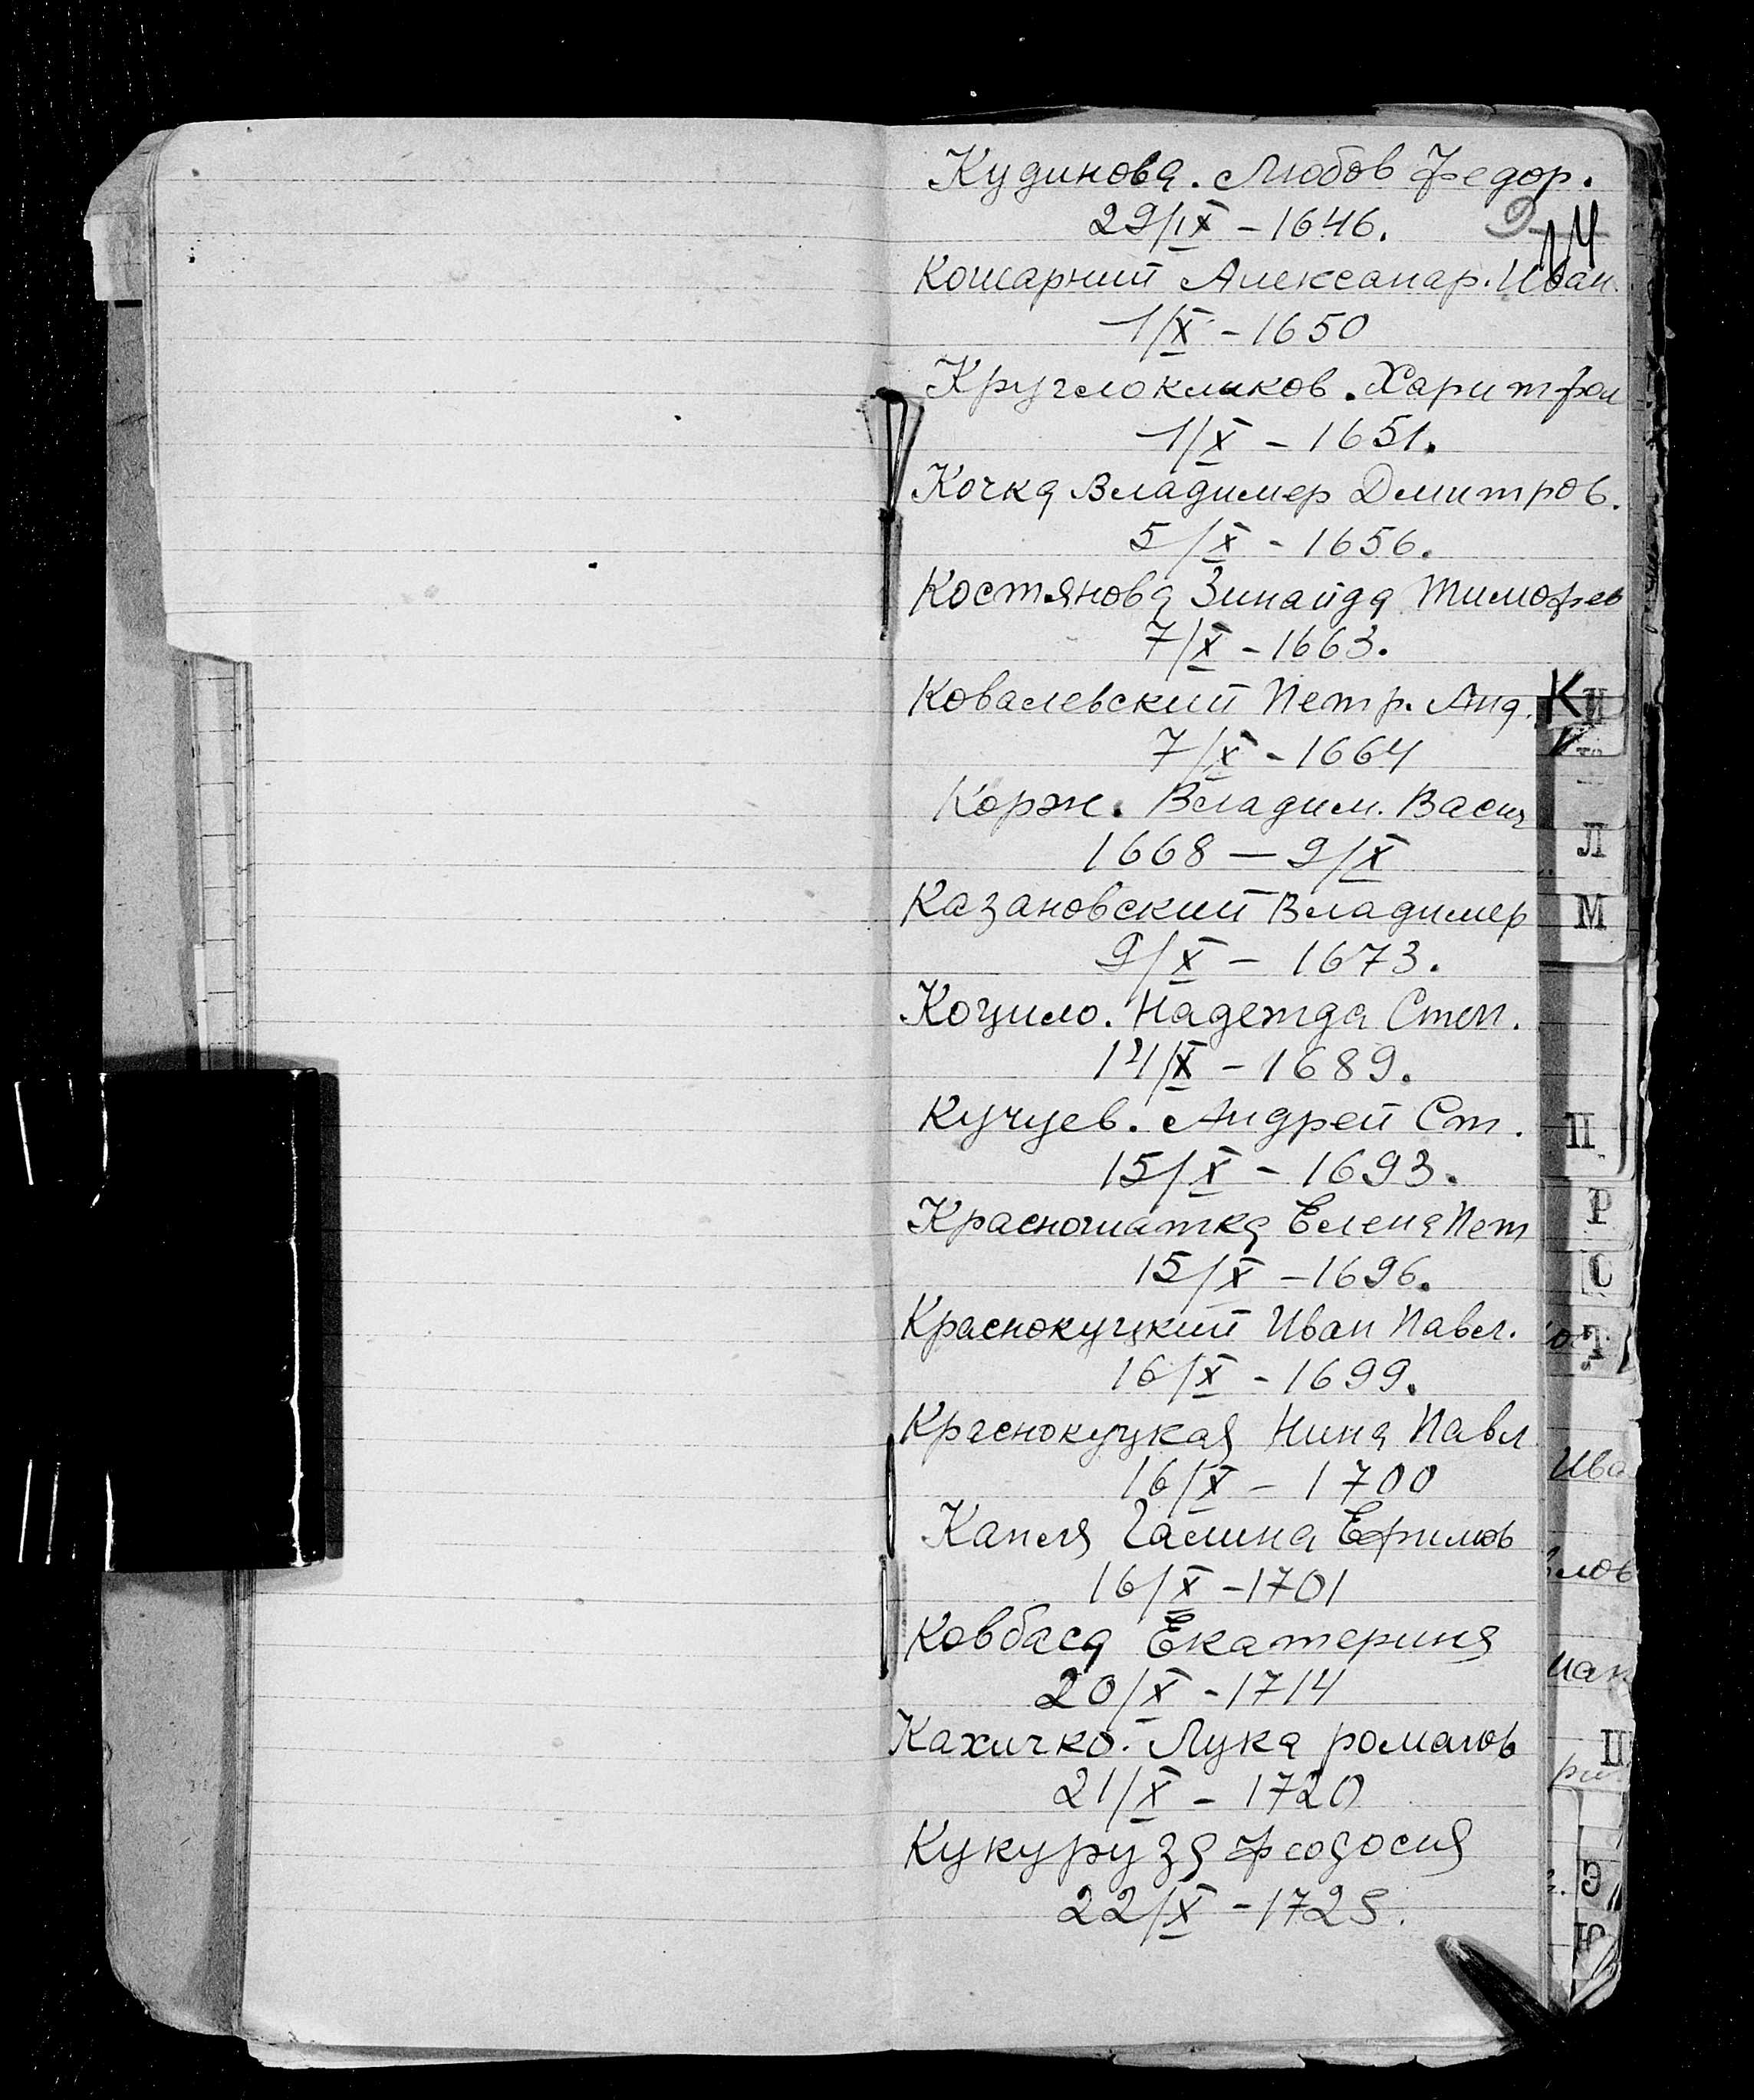 Кудинова. Любов Федор.
29/IX - 1646.
14
Кошарний Александр. Иван.
1/X - 1650
Круглокликов. Харит
1/X - 1651.
Кочка Владимер Дмитров.
5/X - 1656.
Костянова Зинаида Тимофев
7/X - 1663.
Ковалевский Петр. Анд.
7/X - 1664
Корж. Владим. Васил
1668 — 9/X
Казановский Владимер
9/X - 1673.
Коцило. Надежда Степ.
14/X - 1689.
Кучуев. Андрей Ст.
15/X - 1693.
Красношапка Елена Пет
15/X - 1696.
Краснокуцкий Иван Павл.
16/X - 1699.
Краснокуцкая Нина Павл
16/X - 1700
Капля Галина Ефимов
16/X - 1701
Ковбаса Екатерина
20/X - 1714
Кахичко. Лука романов
21/X - 1720
Кукуруза Феодосия
22/X - 1725.
К
Л
М
П
Р
С
Т
Ива
Э
Ю